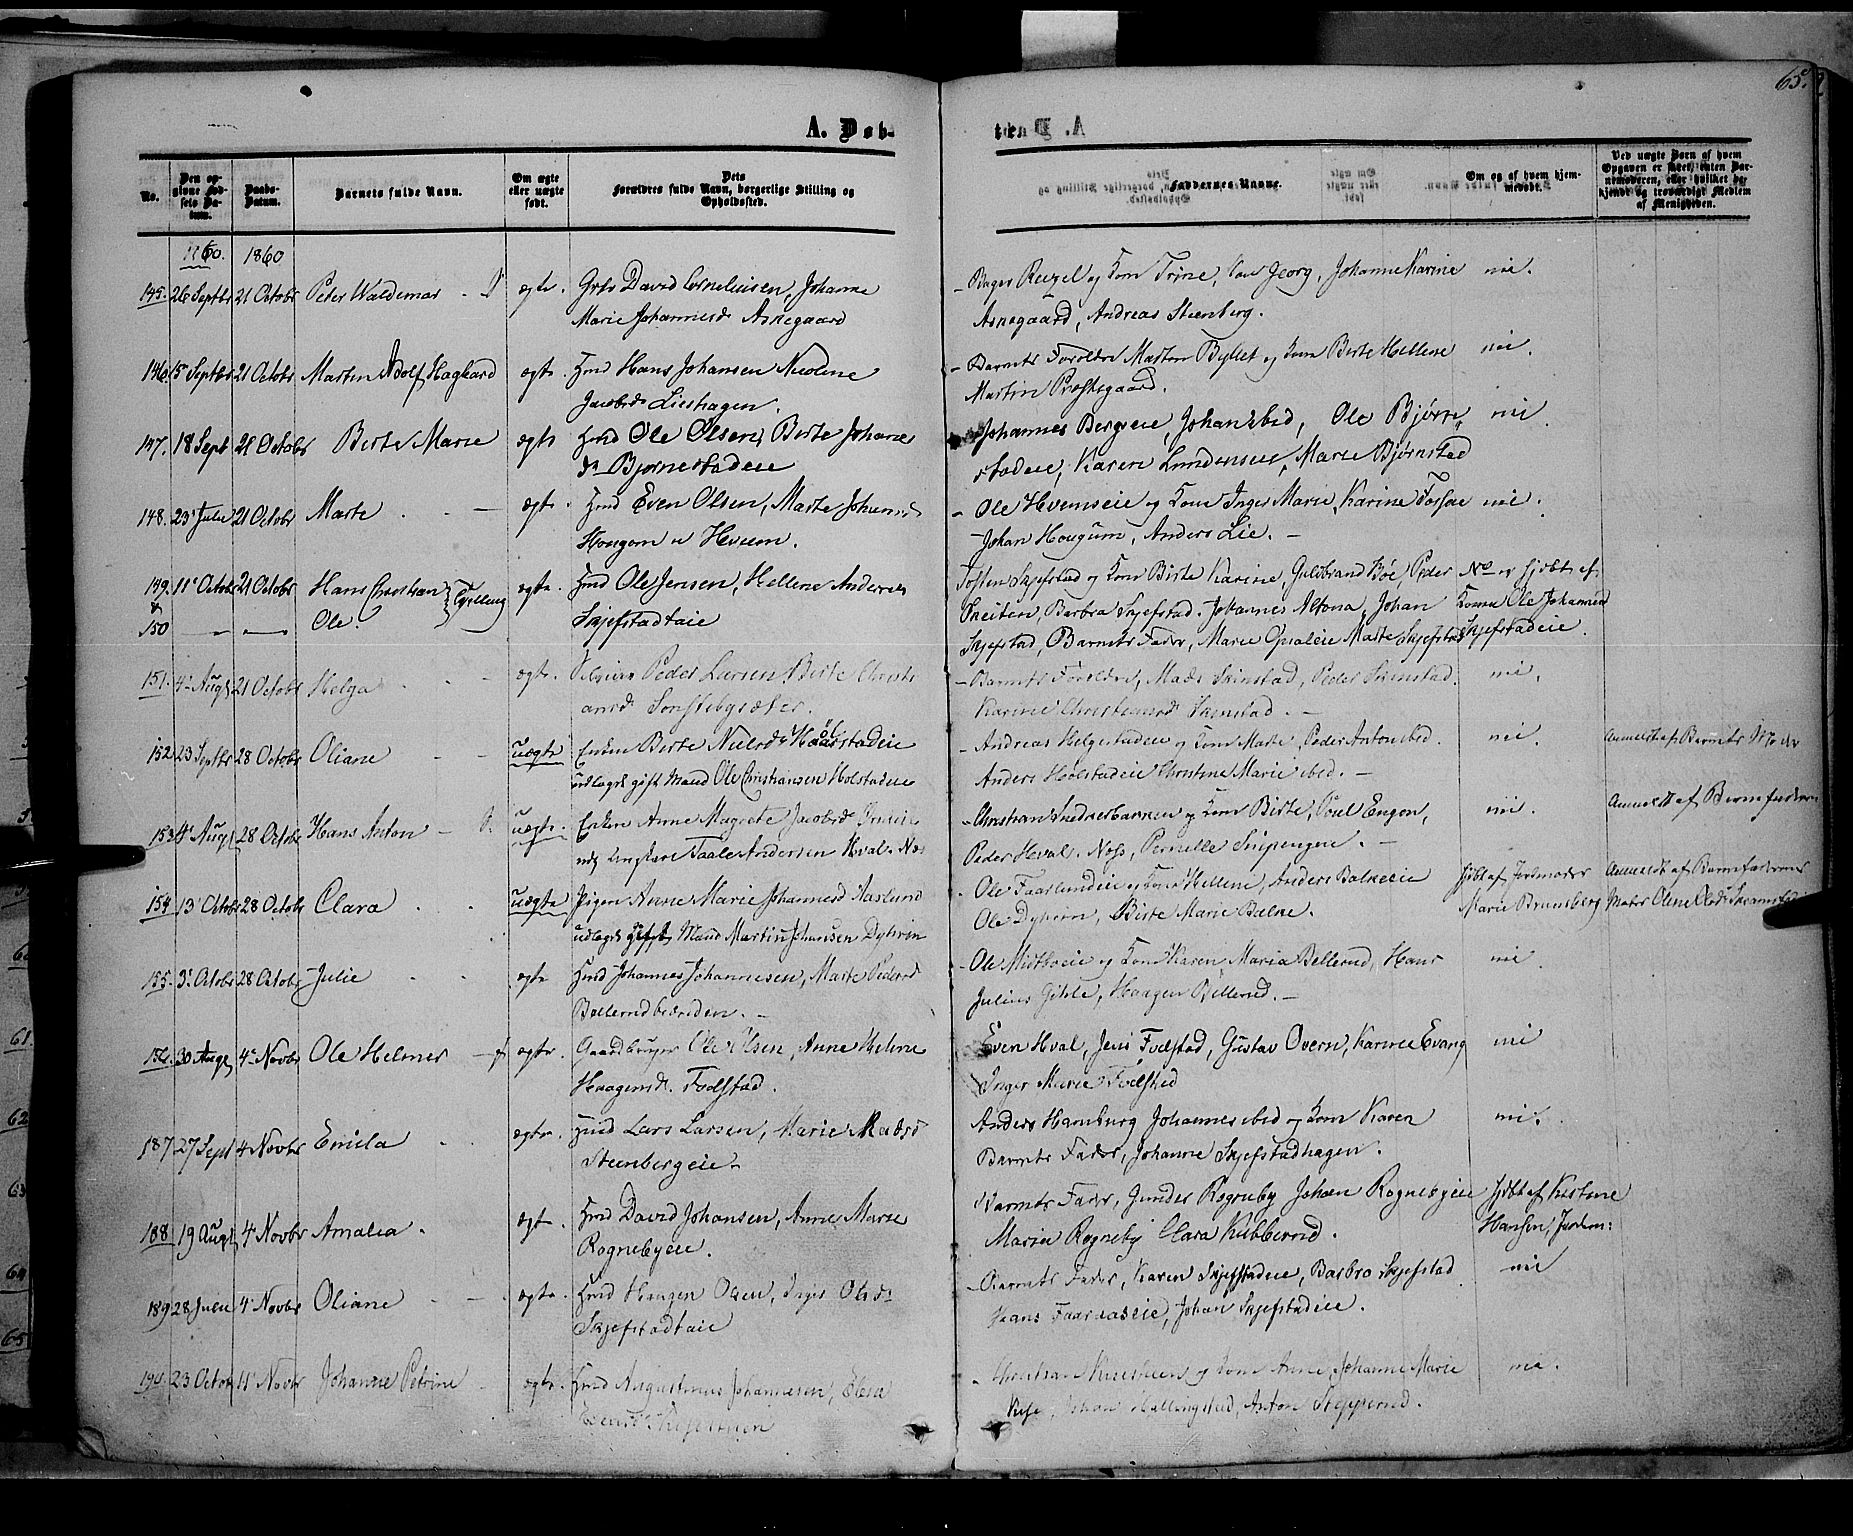 65.
A. Døb-
te.
No.
Den opgivne Fødsels Datum.
Daabs-Datum.
Barnets fulde Navn.
Om ægte eller uægte født.
Dets Forældres fulde Navn, borgerlige Stilling og Opholdssted.
Faddernes Navne.
Om og af hvem hjemmedøbt.
Ved uægte Børn af hvem Opgaven er skeet, uden Barnemoderen, eller hvilket bekjendt og troværdigt Medlem af Menigheden.
1860. 1860
145. 26 Septbr 21 Octobr Peter Waldemar ægte. Grbr David Corneliusen, Johanne
Marie Johannesd Asnegaard
Roger Reizel og Kone Trine, Georg, Johanne Karine nei.
Asnegaard, Andreas Steenberg.
146. 15 Septbr 21 Octobr Martin Adolf Hagbard ægte. Hmd Hans Johansen Nicoline
Jacobsd Lieshagen.
Barnets Forældre Morten Byllet og Kone Birte Hellene nei.
Martin Præstegaard.
147. 18 Sept 21 Octobr Birte Marie ægte Hmd Ole Olsen, Birte Johanes
d. Bjørnestadeie
Johannes Bergseie, Johan ibid, Ole Bjørne nei
stadeie, Karen Lundenseie, Marie Bjørnstad
148. 23 Julii 21 Octobr Marte ægte. Hmd Even Olsen, Marte Johannesd
Hougom u Hveem.
Ole Hveemseie og Kone Inger Marie, Karine Fossae nei.
Johan Hougum, Anders Lie.
149. 11 Octobr 21 Octobr Hans Christian
&
150 Ole. Tvilling
ægte. Hmd Ole Jensen, Hellene Andersd
Skjefstadeie
Tosten Skjefstad og Kone Birte Karine, Guldbrand Bøe, Peder
Sveiten, Barbra Skjefstad. Johannes Altona, Johan
Skjefstad, Barnets Fader, Marie Opsaleie Marte Skjefstad
hjdbt af
Konen Ole Johannesd
Skjefstadeie.
151. 4 Aug 21 Octobr Helga ægte. Peder Larsen Birte Christi
ansd
Barnets Forældre, Mads Skinstad, Peder Skinstad. nei.
Karine Christiansd Skinstad.
152 23 Septbr 28 Octobr Oliane uægte Enken Birte Nielsd Holstadeie
udlagt gift Mand Ole Christiansen Holstadeie
Andreas Helgestadeie og Kone Marte, Peder Anton ibid. nei.
Anders Holstadeie Christine Marie ibid.
Anmeldt af Barnets Moder
153 4 Aug 28 Octobr Hans Anton uægte. Enken Anne Magrete Jacobsd
udl Ungkarl Taale Andersen Hval. Næs
Christian og Kone Birte, Poul Engen, nei.
Peder Hval. Næss, Pernelle Snipengen.
Anmeldt af Barnefaderen
154 13 Octobr 28 Octobr Clara uægte Pigen Anne Marie Johannesd Aaslund
udlagt gift Mand Martin Johansen Dyhren
Ole Faarlundeie og Kone Hellene, Anders Balkeeie
Ole Dyhren, Birte Marie Balke.
hjdbt af Jordmoder
Marie Brunsberg
Anmeldt af Barnefaderens
Moder Olene
155. 3 Octobr 28 Octobr Julie ægte Hmd Johannes Johannesen, Marte Pedersd
Bellerud
Ole og Kone Karen, Maria Bellerud, Hans nei
Julius Gihle, Haagen Bellerud.
156. 30 Aug 4 Novbr Ole Helmer ægte. Gaardbruger Ole Olsen, Anne Helene
Haagensd. Fodstad.
Even Hval, Jens Fodstad, Gustav Overn, Karine Evang nei
Inger Marie Fodstad
187 27 Sept 4 Novbr Emila ægte. Hmd Lars Larsen, Marie Madsd
Steenbergeie.
Anders Hamburg Johannes ibid og Kone Karen nei.
Barnets Fader, Johanne Skjefstadhagen.
188. 19 Aug 4 Novbr Amalia. ægte. Hmd David Johansen, Anne Marie
Rognebyeie.
Barnets Fader, Gunder Rogneby Johan Rognebyeie
Marie Rogneby Clara Kubberud.
hjdbt af Kristine
Hansen, Jordm:
189 28 Julii 4 Novbr Oliane ægte. Hmd Haagen Olsen, Inger Olsd
Skjefstadeie
Barnets Fader, Karen Skjefstadeie, Barbro Skjefstad nei
Hans Faaraaseie, Johan Skjefstadeie.
190. 23 Octobr 11 Novbr Johanne Petrine ægte. Hmd Augustinus Johannesen,
og Kone Anne, Johanne Marie nei.
Johan Anton